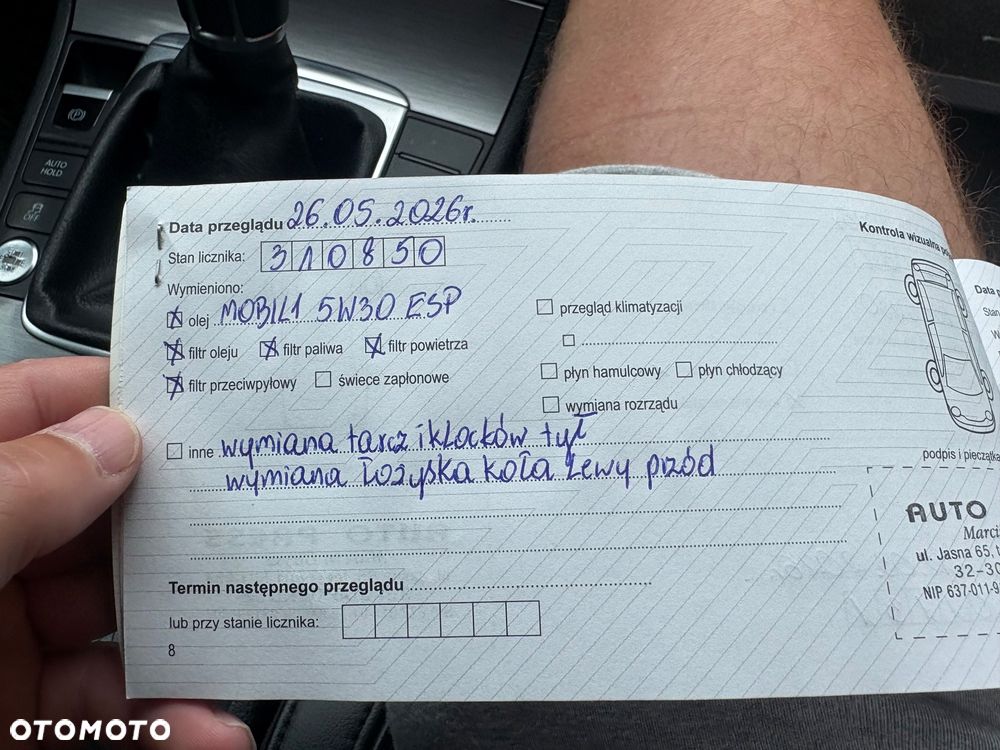 AUTO
HOLD
OFF
Data przeglądu 26.05.2026r.
Stan licznika: 310850
Wymieniono:
olej MOBIL1 5W30 ESP
filtr oleju filtr paliwa filtr powietrza
filtr przeciwpyłowy świece zapłonowe
przegląd klimatyzacji
płyn hamulcowy płyn chłodzący
wymiana rozrządu
inne wymiana tarcz i klocków tył
wymiana łożyska koła lewy przód
Termin następnego przeglądu
lub przy stanie licznika:
8
Kontrola wizualna
podpis i pieczątka
AUTO
Marci
ul. Jasna 65,
32-30
NIP 637-011-9
Data
Stan
OTOMOTO